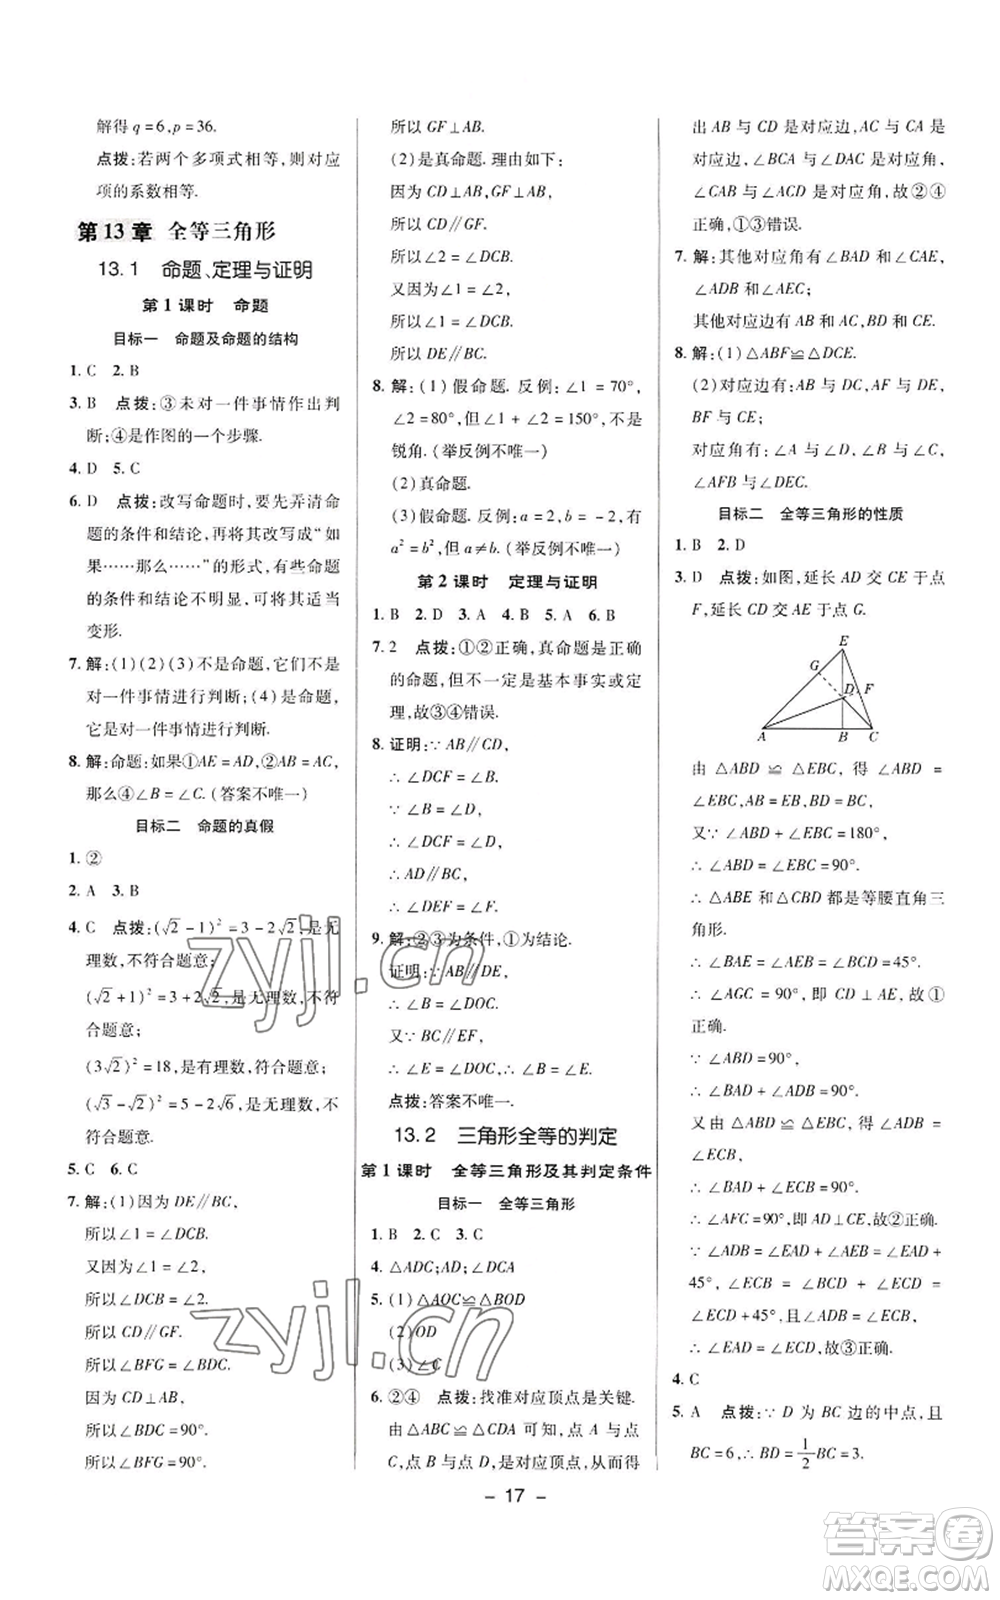 解得 q=6,p=36.
点拨:若两个多项式相等,则对应
项的系数相等.
第13章 全等三角形
13.1 命题、定理与证明
第1课时 命题
目标一 命题及命题的结构
1. C 2. B
3. B 点拨:③未对一件事情作出判
断;④是作图的一个步骤.
4. D 5. C
6. D 点拨:改写命题时,要先弄清命
题的条件和结论,再将其改写成“如
果……那么……”的形式,有些命题
的条件和结论不明显,可将其适当
变形.
7. 解:(1)(2)(3)不是命题,它们不是
对一件事情进行判断;(4)是命题,
它是对一件事情进行判断.
8. 解:命题:如果①AE=AD,②AB=AC,
那么④∠B=∠C.(答案不唯一)
目标二 命题的真假
1. ②
2. A 3. B
4. C 点拨:(√2-1)²=3-2√2,是无
理数,不符合题意;
(√2+1)²=3+2√2,是无理数,不符
合题意;
(3√2)²=18,是有理数,符合题意;
(√3-√2)²=5-2√6,是无理数,不
符合题意.
5. C 6. C
7. 解:(1)因为 DE∥BC,
所以∠1=∠DCB.
又因为∠1=∠2,
所以∠DCB=∠2.
所以 CD∥GF.
所以∠BFG=∠BDC.
因为 CD⊥AB,
所以∠BDC=90°.
所以∠BFG=90°.
所以 GF⊥AB.
(2)是真命题.理由如下:
因为 CD⊥AB,GF⊥AB,
所以 CD∥GF.
所以∠2=∠DCB.
又因为∠1=∠2,
所以∠1=∠DCB.
所以 DE∥BC.
8. 解:(1)假命题.反例:∠1=70°,
∠2=80°,但∠1+∠2=150°,不是
锐角.(举反例不唯一)
(2)真命题.
(3)假命题.反例:a=2,b=-2,有
a²=b²,但 a≠b.(举反例不唯一)
第2课时 定理与证明
1. B 2. D 3. A 4. B 5. A 6. B
7. 2 点拨:①②正确,真命题是正确
的命题,但不一定是基本事实或定
理,故③④错误.
8. 证明:∵AB∥CD,
∴∠DCF=∠B.
∵∠B=∠D,
∴∠DCF=∠D,
∴AD∥BC,
∴∠DEF=∠F.
9. 解:②③为条件,①为结论.
证明:∵AB∥DE,
∴∠B=∠DOC.
又∵BC∥EF,
∴∠E=∠DOC,∴∠B=∠E.
点拨:答案不唯一.
13.2 三角形全等的判定
第1课时 全等三角形及其判定条件
目标一 全等三角形
1. B 2. C 3. C
4. △ADC;AD;∠DCA
5. (1)△AOC≌△BOD
(2)OD
(3)∠C
6. ②④ 点拨:找准对应顶点是关键.
由△ABC≌△CDA 可知,点A与点
C,点B与点D,是对应顶点,从而得
出 AB 与 CD 是对应边,AC 与 CA 是
对应边,∠BCA 与∠DAC 是对应角,
∠CAB 与∠ACD 是对应角,故②④
正确,①③错误.
7. 解:其他对应角有∠BAD 和∠CAE,
∠ADB 和∠AEC;
其他对应边有 AB 和 AC,BD 和 CE.
8. 解:(1)△ABF≌△DCE.
(2)对应边有:AB 与 DC,AF 与 DE,
BF 与 CE;
对应角有:∠A 与∠D,∠B 与∠C,
∠AFB 与∠DEC.
目标二 全等三角形的性质
1. B 2. D
3. D 点拨:如图,延长 AD 交 CE 于点
F,延长 CD 交 AE 于点 G.
E
G
D F
A B C
由 △ABD ≌ △EBC, 得 ∠ABD =
∠EBC,AB=EB,BD=BC,
又∵∠ABD+∠EBC=180°,
∴∠ABD=∠EBC=90°.
∴△ABE 和△CBD 都是等腰直角三
角形.
∴∠BAE=∠AEB=∠BCD=45°.
∴∠AGC=90°,即 CD⊥AE,故①
正确.
∵∠ABD=90°,
∴∠BAD+∠ADB=90°.
又∵△ABD≌△EBC,
∴∠ADB=∠ECB,
∴∠BAD+∠ECB=90°.
∴∠AFC=90°,即 AD⊥CE,故②正确.
∵∠ADB=∠EAD+∠AEB=∠EAD+
45°,∠ECB=∠BCD+∠ECD=
∠ECD+45°,且∠ADB=∠ECB,
∴∠EAD=∠ECD,故③正确.
4. C
5. A 点拨:∵D 为 BC 边的中点,且
BC=6,∴BD=1/2BC=3.
- 17 -
zyjl.cn
zyjl.cn
答案圈
MXQE.COM